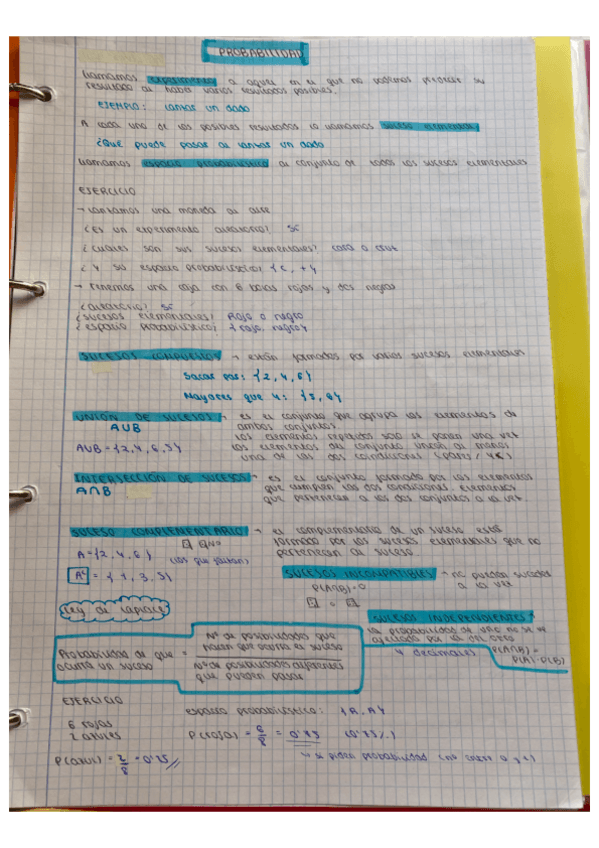 PROBABILIDAD
Llamamos experimento a aquel en el que no podemos predecir su
resultado al haber varios resultados posibles.
EJEMPLO: lanzar un dado
A cada uno de los posibles resultados lo llamamos suceso elemental
¿Qué puede pasar al lanzar un dado
Llamamos espacio probabilístico al conjunto de todos los sucesos elementales
EJERCICIO
→ Lanzamos una moneda al aire
¿Es un experimento aleatorio? Sí
¿Cuáles son sus sucesos elementales? cara o cruz
¿Y su espacio probabilístico? {C, +}
→ Tenemos una caja con 6 bolas rojas y dos negras
¿aleatorio? Sí
¿sucesos elementales? Rojo o negro
¿espacio probabilístico? {rojo, negro}
SUCESOS COMPUESTOS → están formados por varios sucesos elementales
Sacar par: {2, 4, 6}
Mayores que 4: {5, 6}
UNIÓN DE SUCESOS → es el conjunto que agrupa los elementos de
AUB ambos conjuntos
los elementos repetidos solo se ponen una vez
AUB = {2, 4, 6, 5} los elementos del conjunto unión al menos
una de las dos condiciones (pares / 4<)
INTERSECCIÓN DE SUCESOS → es el conjunto formado por los elementos
A∩B que cumplen las dos condiciones, elementos
que pertenecen a los dos conjuntos a la vez
SUCESO COMPLEMENTARIO → el complementario de un suceso está
formado por los sucesos elementales que no
A = {2, 4, 6} (los que faltan) pertenecen al suceso
Aᶜ = {1, 3, 5}
SUCESOS INCOMPATIBLES → no pueden suceder
a la vez
P(A∩B)=0
Ley de Laplace
SUCESOS INDEPENDIENTES →
la probabilidad de uno no se ve
afectada por la del otro
4 decimales P(A∩B) =
P(A)·P(B)
Probabilidad de que ocurra un suceso = Nº de posibilidades que hacen que ocurra el suceso / Nº de posibilidades diferentes que pueden pasar
EJERCICIO
espacio probabilístico: {R, A}
6 rojas
2 azules
P(roja) = 6/8 = 0'75 (0'75%)
P(azul) = 2/8 = 0'25
→ si piden probabilidad (nº entre 0 y 1)